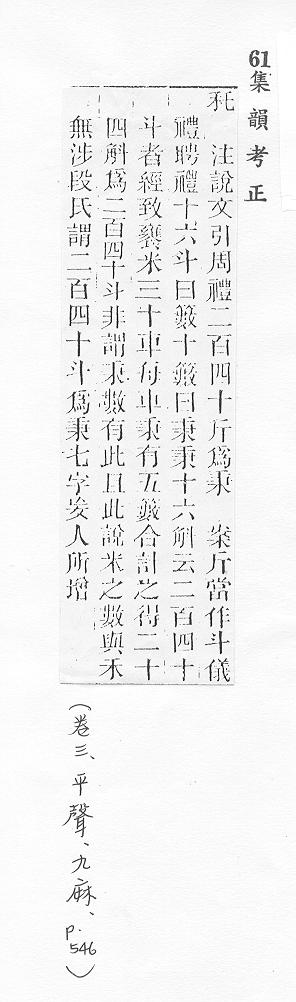 61集韻考正
秅 注說文引周禮二百四十斤爲秉 案斤當作斗儀
禮聘禮十六斗曰籔十籔曰秉秉十六斛云二百四十
斗者經致饔米三十車每車秉有五籔合計之得二十
四斛爲二百四十斗非謂秉數有此且此說米之數與禾
無涉段氏謂二百四十斗爲秉七字妄人所增
(卷三、平聲、九麻、p.546)